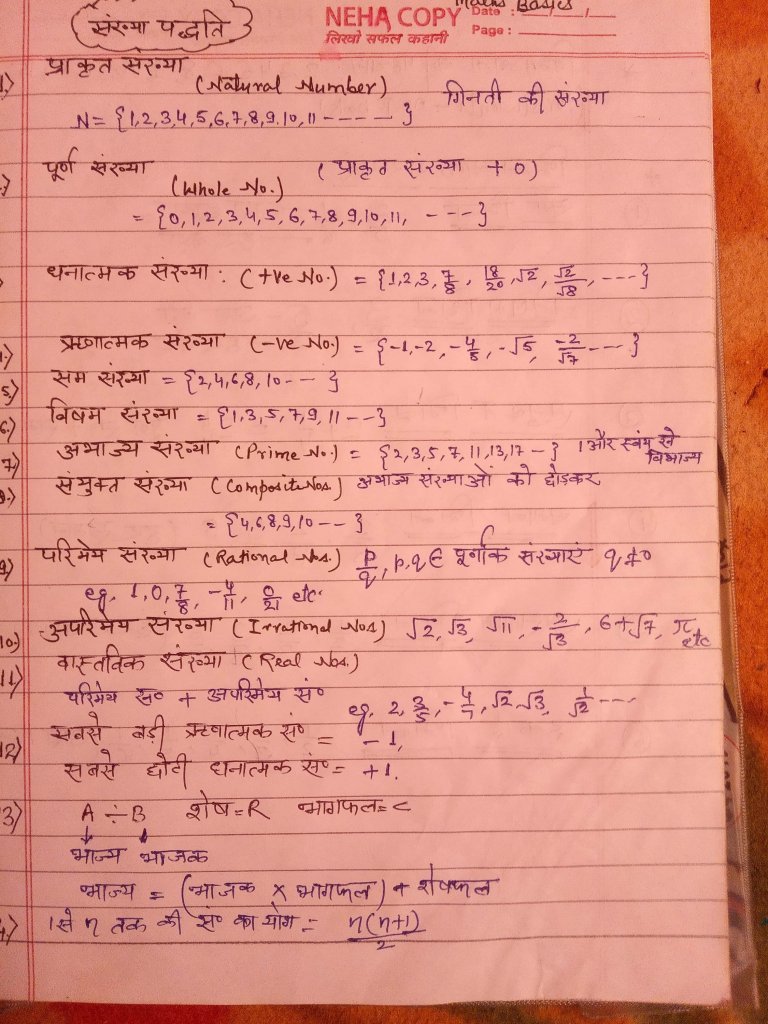 Maths Basics
संख्या पद्धति
NEHA COPY Date :
लिखो सफल कहानी Page :
1) प्राकृत संख्या
(Natural Number) गिनती की संख्या
N= {1,2,3,4,5,6,7,8,9,10,11 ----- }
पूर्ण संख्या (प्राकृत संख्या + 0)
(Whole No.)
= {0,1,2,3,4,5,6,7,8,9,10,11, ---- }
धनात्मक संख्या : (+ve No.) = {1,2,3, 7/8, 18/20, √2, √2/√8, ---- }
ऋणात्मक संख्या (-ve No.) = {-1,-2, -4/5, -√5, -2/√7 ---- }
5) सम संख्या = {2,4,6,8,10--- }
6) विषम संख्या = {1,3,5,7,9,11 ---}
7) अभाज्य संख्या (Prime No.) = {2,3,5,7,11,13,17 -- } 1 और स्वंय से विभाज्य
संयुक्त संख्या (Composite Nos.) अभाज्य संख्याओं को छोड़कर
= {4,6,8,9,10 --- }
9) परिमेय संख्या (Rational Nos.) p/q, p,q ∈ पूर्णांक संख्याएं q≠0
eg, 1,0, 7/8, -4/11, 0/21 etc.
10) अपरिमेय संख्या (Irrational Nos) √2, √3, √11, -2/√3, 6+√7, π etc
11) वास्तविक संख्या (Real Nos.)
परिमेय सं० + अपरिमेय सं० eg, 2, 3/5, -4/7, √2, √3, 1/√2 ----
12) सबसे बड़ी ऋणात्मक सं० = -1,
सबसे छोटी धनात्मक सं० = +1.
13) A ÷ B शेष=R भागफल=C
भाज्य भाजक
भाज्य = (भाजक × भागफल) + शेषफल
1 से n तक की सं० का योग = n(n+1)/2